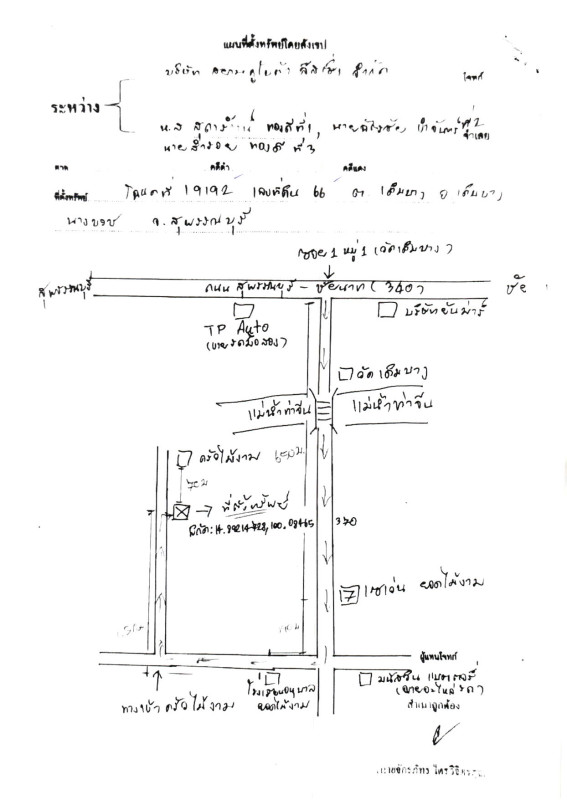 แผนที่ตั้งทรัพย์โดยสังเขป
บริษัท จำกัด
โจทก์
ระหว่าง
น.ส ทองดี ที่1, นาย ที่2
จำเลย
นายสำรวย ทองดี ที่3
ศาล คดีดำ คดีแดง
ที่ตั้งทรัพย์ โฉนดที่ 19192 เลขที่ดิน 66 ต เดิมบาง อ เดิมบาง
นางบวช จ.สุพรรณบุรี
ซอย 1 หมู่ 1 (วัดเดิมบาง)
สุพรรณบุรี
ถนน สุพรรณบุรี - ชัยนาท (340)
ชัย
TP Auto
(ขายรถมือสอง)
บริษัทยันม่าร์
วัดเดิมบาง
แม่น้ำท่าจีน
แม่น้ำท่าจีน
ครัวไม้งาม
650 ม.
70 ม
→ ที่ตั้งทรัพย์
370
7 เซเว่น ยอดไม้งาม
ผู้แทนโจทก์
โรงเรียนอนุบาล
ยอดไม้งาม
(ขายอะไหล่รถ)
ทางเข้า ครัวไม้งาม
สำเนาถูกต้อง